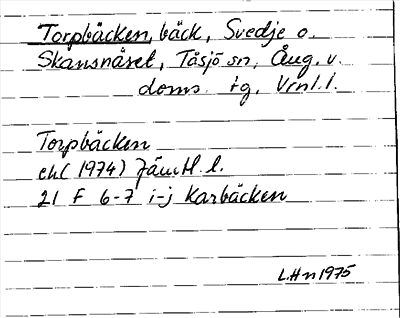 Torpbäcken, bäck, Svedje o.
Skansnäset, Tåsjö sn, Ång. v.
doms. tg, Vrnl. l.
Torpbäcken
ek( 1974) Jämtl. l.
21 F 6-7 i-j Karbäcken
L.Hn 1975